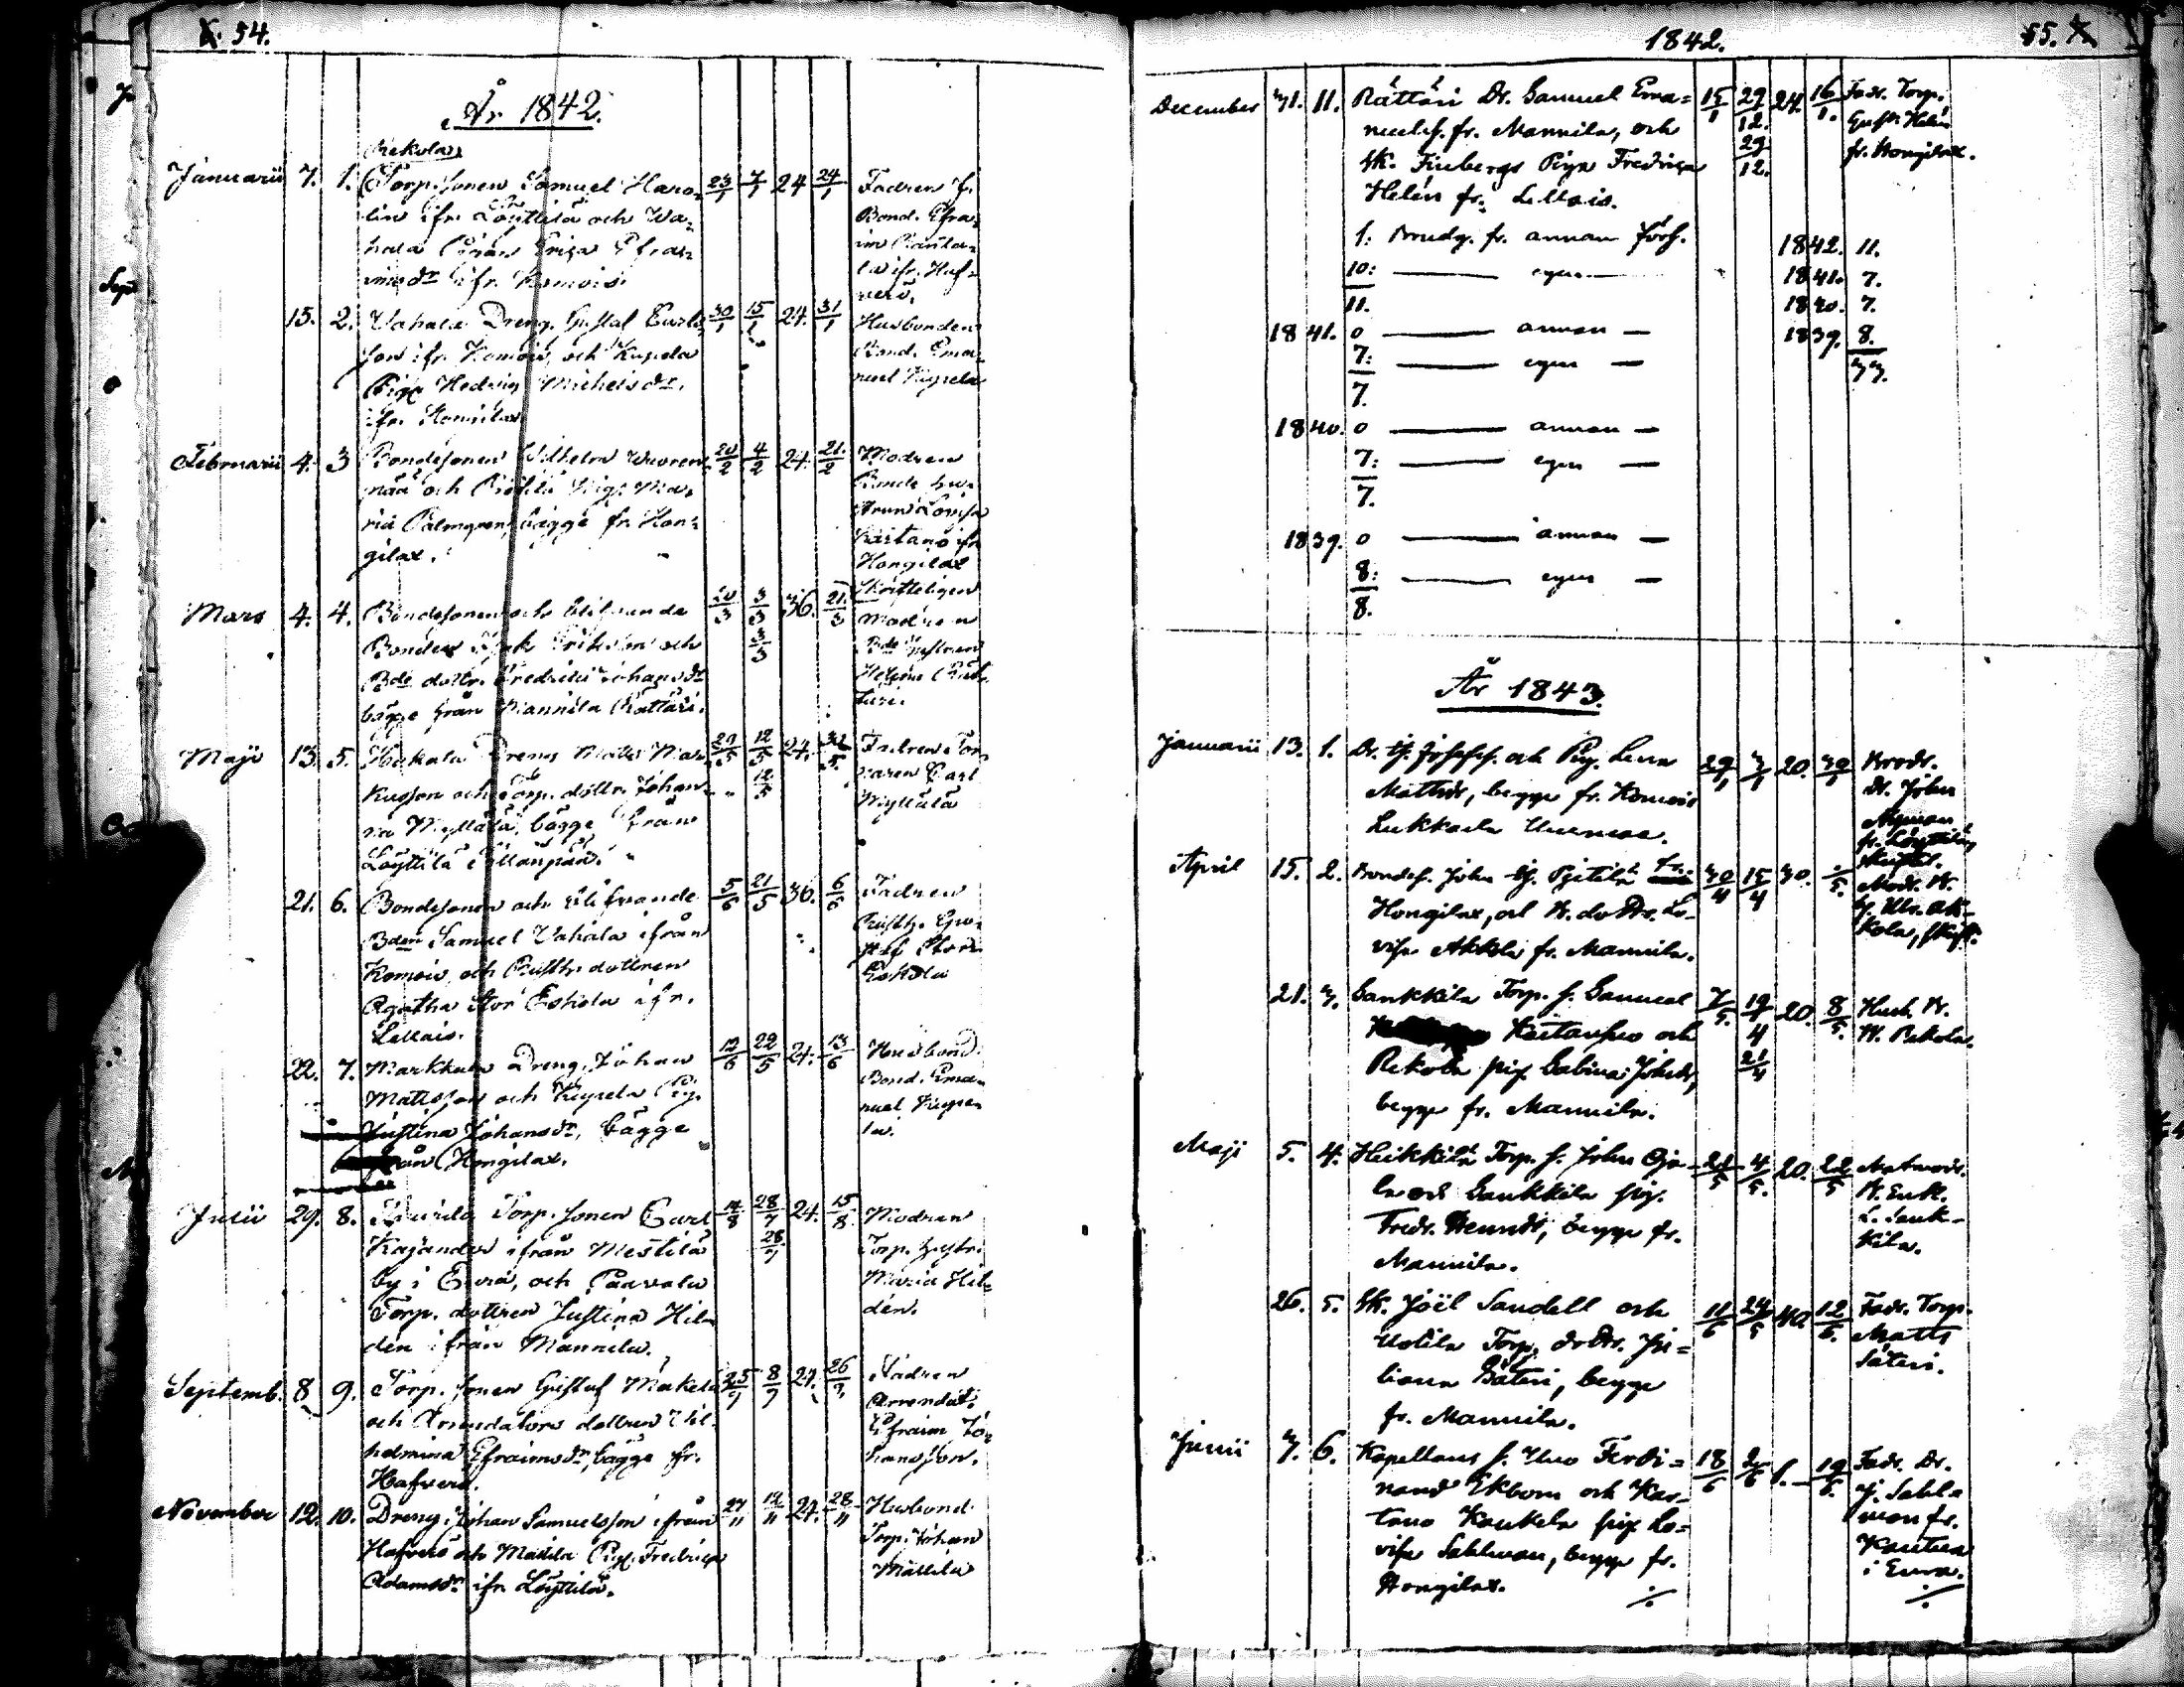 54.
År 1842.
Rekola
Januarii 7. 1. Torp. sonen Samuel Haro-
lin ifr. Löyttilä och Wa-
hala Pigan Eriga Efra-
imsdr ifr. Komois.
23/1 7/1 24 24/1
Fadren f.
Bond. Efra-
im
ifr. Haf-
verö.
15. 2. Vahala Dreng. Gustaf Carls-
son ifr. Komois, och Kupela
Piga Hedvig Michelsdr.
ifr. Hongilax
30/1 15/1 24. 31/1
Husbonden
Bond. Ema-
nuel Kupela
Februarii 4. 3 Bondesonen Wilhelm Wuoren-
pää och Pig. Ma-
ria Palmgren, bägge fr. Hon-
gilax.
20/2 4/2 24. 21/2
Modren
Bonde hu-
strun Lovisa
Kaitano ifr.
Hongilax
Skrifteligen
Mars 4. 4. Bondesonen och blifvande
Bonden Erik Eriksson och
Bde dottr. Fredrika Johansdr
bägge från Mannila Rättäri.
20/3 3/3 36. 21/3
3/3
Modren
Bde hustrun
Helena Rät-
täri.
Maji 13. 5. Hakala Dreng Matts Mar-
kusson och Torp. dottr. Johan-
na Myllälä, bägge från
Löyttilä
12/5 24.
12/5
Fadren Tor-
paren Carl
Myllälä
21. 6. Bondesonen och blifvande
Bden Samuel Vahala ifrån
Komois, och Rusth. dottren
Agatha Stor Eskola ifr.
Lellais.
5/6 21/5 36. 6/6
Fadren
Rusth. Gu-
staf Stor
Eskola
22. 7. Markkula Dreng. Johan
Mattsson och Kupela Pig.
Justina Johansdr, bägge
från Hongilax.
12/6 22/5 24. 13/6
Husbond.
Bond. Ema-
nuel Kupe-
la.
Julii 29. 8. Torp. sonen Carl
Kajander ifrån Mestilä
by i Eura, och Paavala
Torp. dottren Justina Hil-
dén ifrån Mannila.
14/8 28/7 24. 15/8
28/7
Modren
Torp. hustr.
Maria Hil-
dén.
Septemb. 8 9. Torp. sonen Gustaf Mäkelä
och Arrendators dottren Vil-
helmina Efraimsdr, bägge fr.
Hafverö.
25/9 8/9 24. 26/9
Fadren
Arrendat.
Efraim Jo-
hansson.
November 12. 10. Dreng. Johan Samuelsson ifrån
Hafverö och Mattila Pig. Fredrica
Adamsdr ifr. Löyttilä.
27/11 12/11 24. 28/11
Husbond
Torp. Johan
Mattila
1842.
55.
December 31. 11. Rättäri Dr. Samuel Ema-
nuels. fr. Mannila, och
Sk. Finbergs Piga Fredrica
Helén fr. Lellais.
15/1 29/12. 24. 16/1.
29/12.
Fadr. Torp.
Gust. Helén
fr. Hongilax.
1: Brudg. fr. annan förs. 1842. 11.
10: — egen — 1841. 7.
11. 1840. 7.
1841. 0 — annan — 1839. 8.
7: — egen — 33.
7.
1840. 0 — annan —
7: — egen —
7.
1839. 0 — annan —
8: — egen —
8.
År 1843.
Januarii 13. 1. Dr. Gf. Josefss. och Pig. Lena
Mattsdr, begge fr. Komois
Lukkarla
29/1 3/1 20. 30/1
Brodr.
Dr. Johan
Nyman
fr. Löyttilä,
skriftl.
April 15. 2. Bondes. Johan Gf. Pietilä fr.
Hongilax, och B. dottr. Lo-
visa Akkola fr. Mannila.
30/4 15/4 30. /5.
Modr. B.
h. Ulr. Ak-
kola, skrift.
21. 3. Sankkila Torp. s. Samuel
Kaitanpeo och
Rekola pig. Sabina Johdr,
begge fr. Mannila.
7/5. 19/4 20. 8/5.
21/4
Husb. B.
W. Rekola.
Maji 5. 4. Heikkilä Torp. s. John Oja-
la och Sankkila pig.
Fredr. Henrdr, begge fr.
Mannila.
21/5 4/5. 20. 22/5
Matmodr.
B. Enk.
L. Sank-
kila.
26. 5. Sk. Joël Sandell och
Uotila Torp. dottr. Ju-
liana Säteri, begge
fr. Mannila.
11/6 24/5 40 12/6.
Fadr. Torp.
Matts
Säteri.
Junii 3. 6. Kapellans s. Uno Ferdi-
nand Ekbom och Kai-
tano Kaukela pig. Lo-
visa Sahlman, begge fr.
Hongilax.
18/6 2/6 1. — 19/6.
Fadr. Dr.
J. Sahl-
man fr.
Kauttua
i Eura.